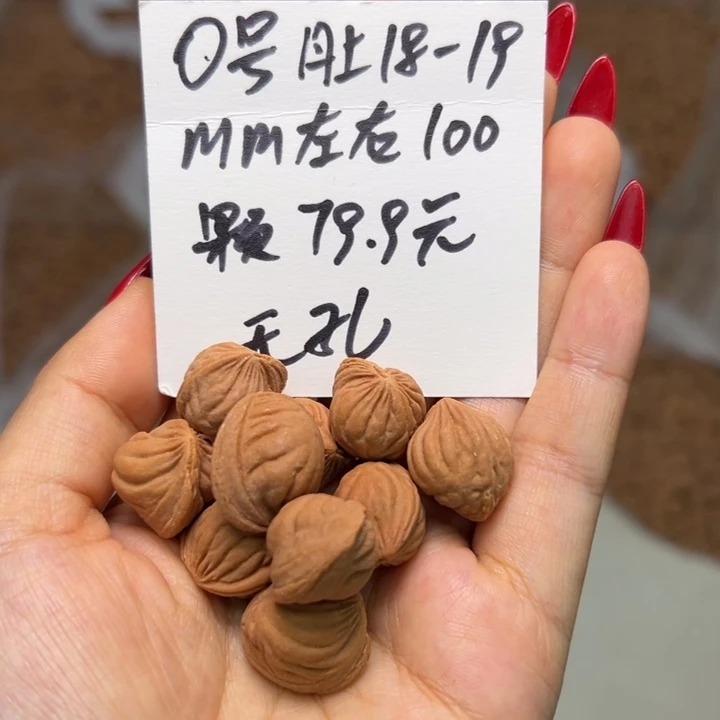 0号肚18-19
MM左右100
颗79.9元
无孔